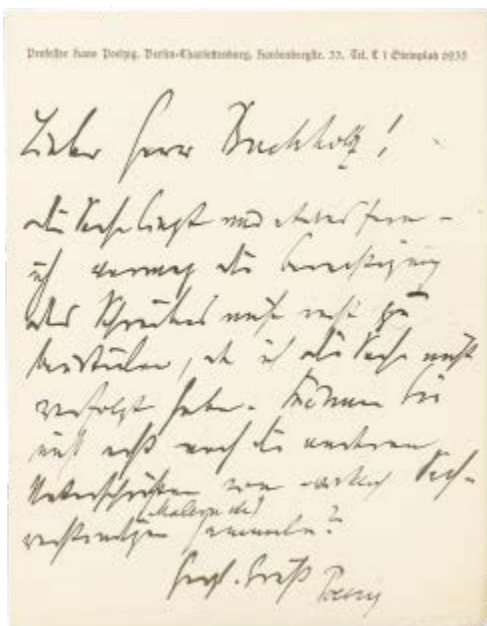 Professor Hans Poelzig. Berlin-Charlottenburg, Hardenbergstr. 33. Tel. C 1 Steinplatz 6935
Lieber Herr Buchholz!
die Sache liegt mir etwas fern –
ich vermag die Berechtigung
des Schreibens nicht recht zu
beurteilen, da ich die Sache nicht
verfolgt habe. Können Sie
nicht erst noch die anderen
Unterschriften von wirklich Sach-
verständigen (Malern etc) sammeln?
Herzl. Gruß Poelzig